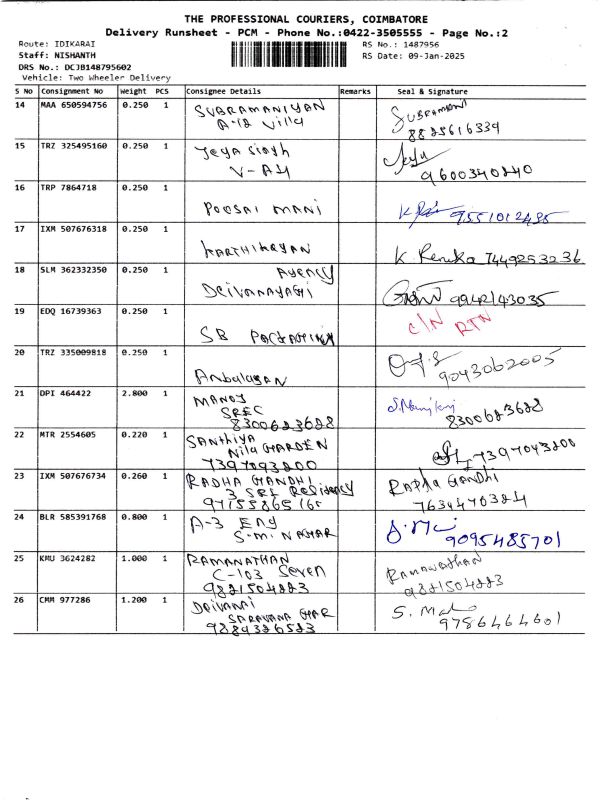 THE PROFESSIONAL COURIERS, COIMBATORE
Delivery Runsheet - PCM - Phone No.:0422-3505555 - Page No.:2
Route: IDIKARAI
RS No.: 1487956
Staff: NISHANTH
RS Date: 09-Jan-2025
DRS No.: DCJB148795602
Vehicle: Two Wheeler Delivery
S No Consignment No Weight PCS Consignee Details Remarks Seal & Signature
14 MAA 650594756 0.250 1 SUBRAMANIYAN SUBRAMANI
A-12 Villa 8825616339
15 TRZ 325495160 0.250 1 Jeya Singh
V-A4 9600340240
16 TRP 7864718 0.250 1
POOSAI MANI 9551012485
17 IXM 507676318 0.250 1
KARTHIKEYAN K. Renuka 7449253236
18 SLM 362332350 0.250 1 AGENCY
DEIVANAYAGI 9942143035
19 EDQ 16739363 0.250 1 C/N RTN
SB
20 TRZ 335009818 0.250 1
Anbalagan 9043062005
21 DPI 464422 2.800 1 MANOJ
SREC
8300623688 8300623688
22 MTR 2554605 0.220 1 SANTHIYA
Nila GARDEN
7397093200 7397093200
23 IXM 507676734 0.260 1 RADHA GANDHI RADHA GANDHI
3 SRI Residency
7634470324
24 BLR 585391768 0.800 1 A-3
S.M. NAGAR 9095485701
25 KMU 3624282 1.000 1 RAMANATHAN Ramanathan
C-103 Seven
9821504223 9821504223
26 CMM 977286 1.200 1 DEIVANAI
SARAVANA
9884326523 9786464601